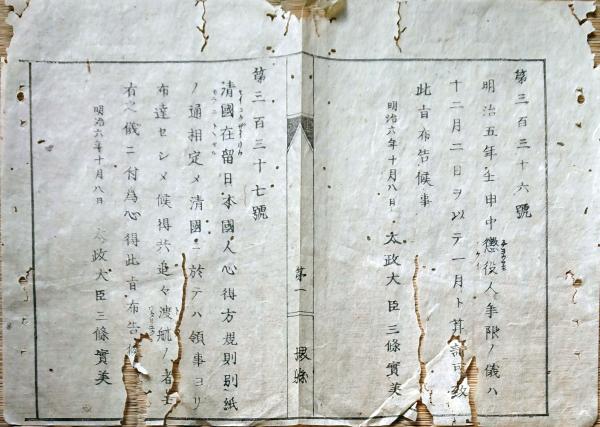 第三百三十六號
明治五年壬申中懲役人年限ノ儀ハ
十二月二日ヲ以テ一月ト算
此旨布告候事
明治六年十月八日 太政大臣三條實美
第一
第三百三十七號
清國在留日本國人心得方規則別紙
ノ通相定メ清國ニ於テハ領事ヨリ
布達セシメ候得共追々渡航ノ者
有之儀ニ付為心得此旨布告候
明治六年十月八日 太政大臣三條實美